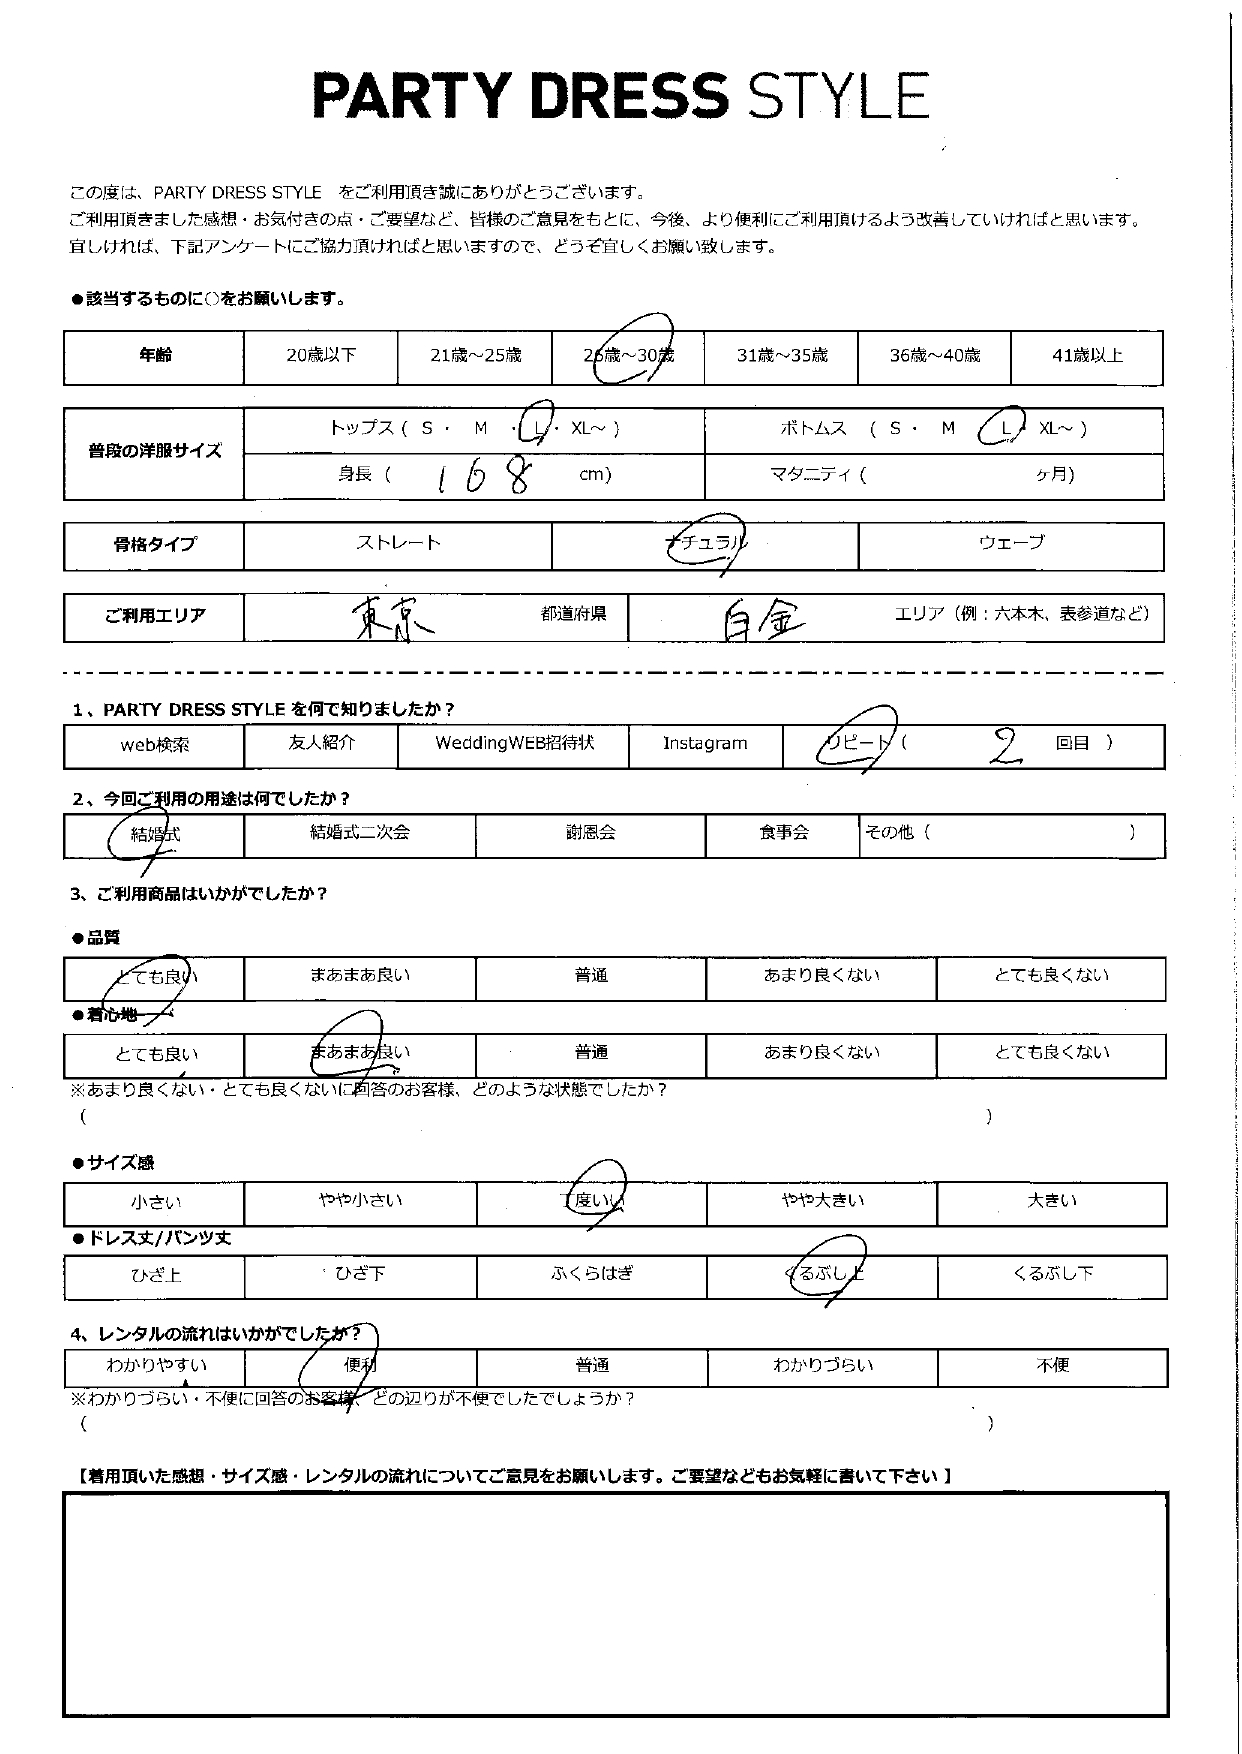 PARTY DRESS STYLE
この度は、PARTY DRESS STYLE をご利用頂き誠にありがとうございます。
ご利用頂きました感想・お気付きの点・ご要望など、皆様のご意見をもとに、今後、より便利にご利用頂けるよう改善していければと思います。
宜しければ、下記アンケートにご協力頂ければと思いますので、どうぞ宜しくお願い致します。
●該当するものに○をお願いします。
年齢 20歳以下 21歳～25歳 26歳～30歳 31歳～35歳 36歳～40歳 41歳以上
普段の洋服サイズ トップス ( S ・ M ・ L ・ XL～ ) ボトムス ( S ・ M L ・ XL～ )
身長 ( 168 cm) マタニティ ( ヶ月)
骨格タイプ ストレート ナチュラル ウェーブ
ご利用エリア 東京 都道府県 白金 エリア（例：六本木、表参道など）
1、PARTY DRESS STYLE を何で知りましたか？
web検索 友人紹介 WeddingWEB招待状 Instagram リピート ( 2 回目 )
2、今回ご利用の用途は何でしたか？
結婚式 結婚式二次会 謝恩会 食事会 その他 ( )
3、ご利用商品はいかがでしたか？
●品質
とても良い まあまあ良い 普通 あまり良くない とても良くない
●着心地
とても良い まあまあ良い 普通 あまり良くない とても良くない
※あまり良くない・とても良くないに回答のお客様、どのような状態でしたか？
( )
●サイズ感
小さい やや小さい 丁度いい やや大きい 大きい
●ドレス丈/パンツ丈
ひざ上 ひざ下 ふくらはぎ くるぶし上 くるぶし下
4、レンタルの流れはいかがでしたか？
わかりやすい 便利 普通 わかりづらい 不便
※わかりづらい・不便に回答のお客様、どの辺りが不便でしたでしょうか？
( )
【着用頂いた感想・サイズ感・レンタルの流れについてご意見をお願いします。ご要望などもお気軽に書いて下さい 】